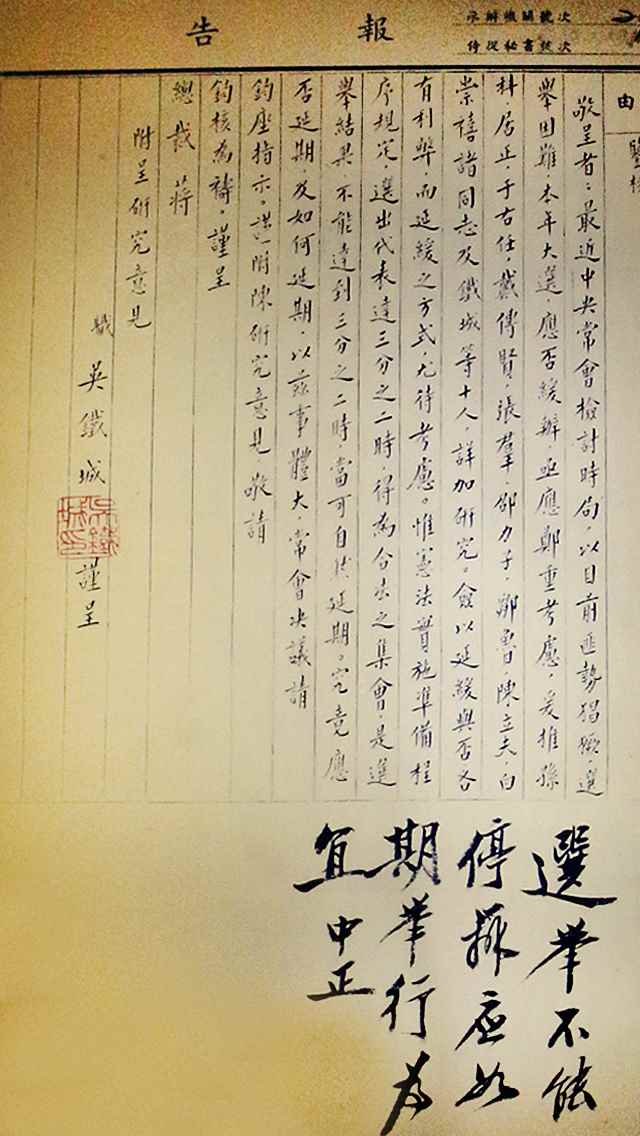 報告
由
敬呈者：最近中央常會檢討時局，以目前匪勢猖獗，選
舉困難，本年大選應否緩辦，亟應鄭重考慮，爰推孫
科，居正，于右任，戴傳賢，張羣，邵力子，鄒魯，陳立夫，白
崇禧諸同志及鐵城等十人，詳加研究。僉以延緩與否各
有利弊，而延緩之方式，尤待考慮。惟憲法實施準備程
序規定，選出代表達三分之二時，得為合法之集會，是選
舉結果不能達到三分之二時，當可自然延期，究竟應
否延期，及如何延期，以茲事體大，常會決議請
鈞座指示。謹附陳研究意見敬請
鈞核為禱。謹呈
總裁 蔣
附呈研究意見
職 吳鐵城 謹呈
選舉不能
停辦應如
期舉行為
宜 中正